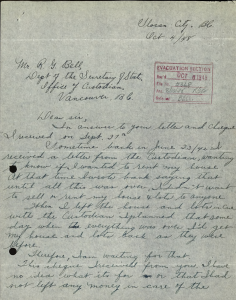 Slocan City, B.C.
Oct 4/48
Mr. R. G. Bell,
Dept of the Secretary of State,
Office of Custodian,
Vancouver B.C.
EVACUATION SECTION
OCT
Dear sir:
In answer to your letter and cheque
I received on Sept 27th
Sometime back in June 23/42 I
received a letter from the Custodian, wanting
to know if I wanted to rent my house.
At that time I wrote back saying that
until all this was over, I didn't want
to sell or rent my house & lots to anyone.
When I left his house and
with the Custodian I planned that some
day when the everything was over I'd get
my house and lots back as they were
before.
Therefore, I am waiting for that
This cheque I received from you I have
no idea what it's for as I had
not left any money in care of the